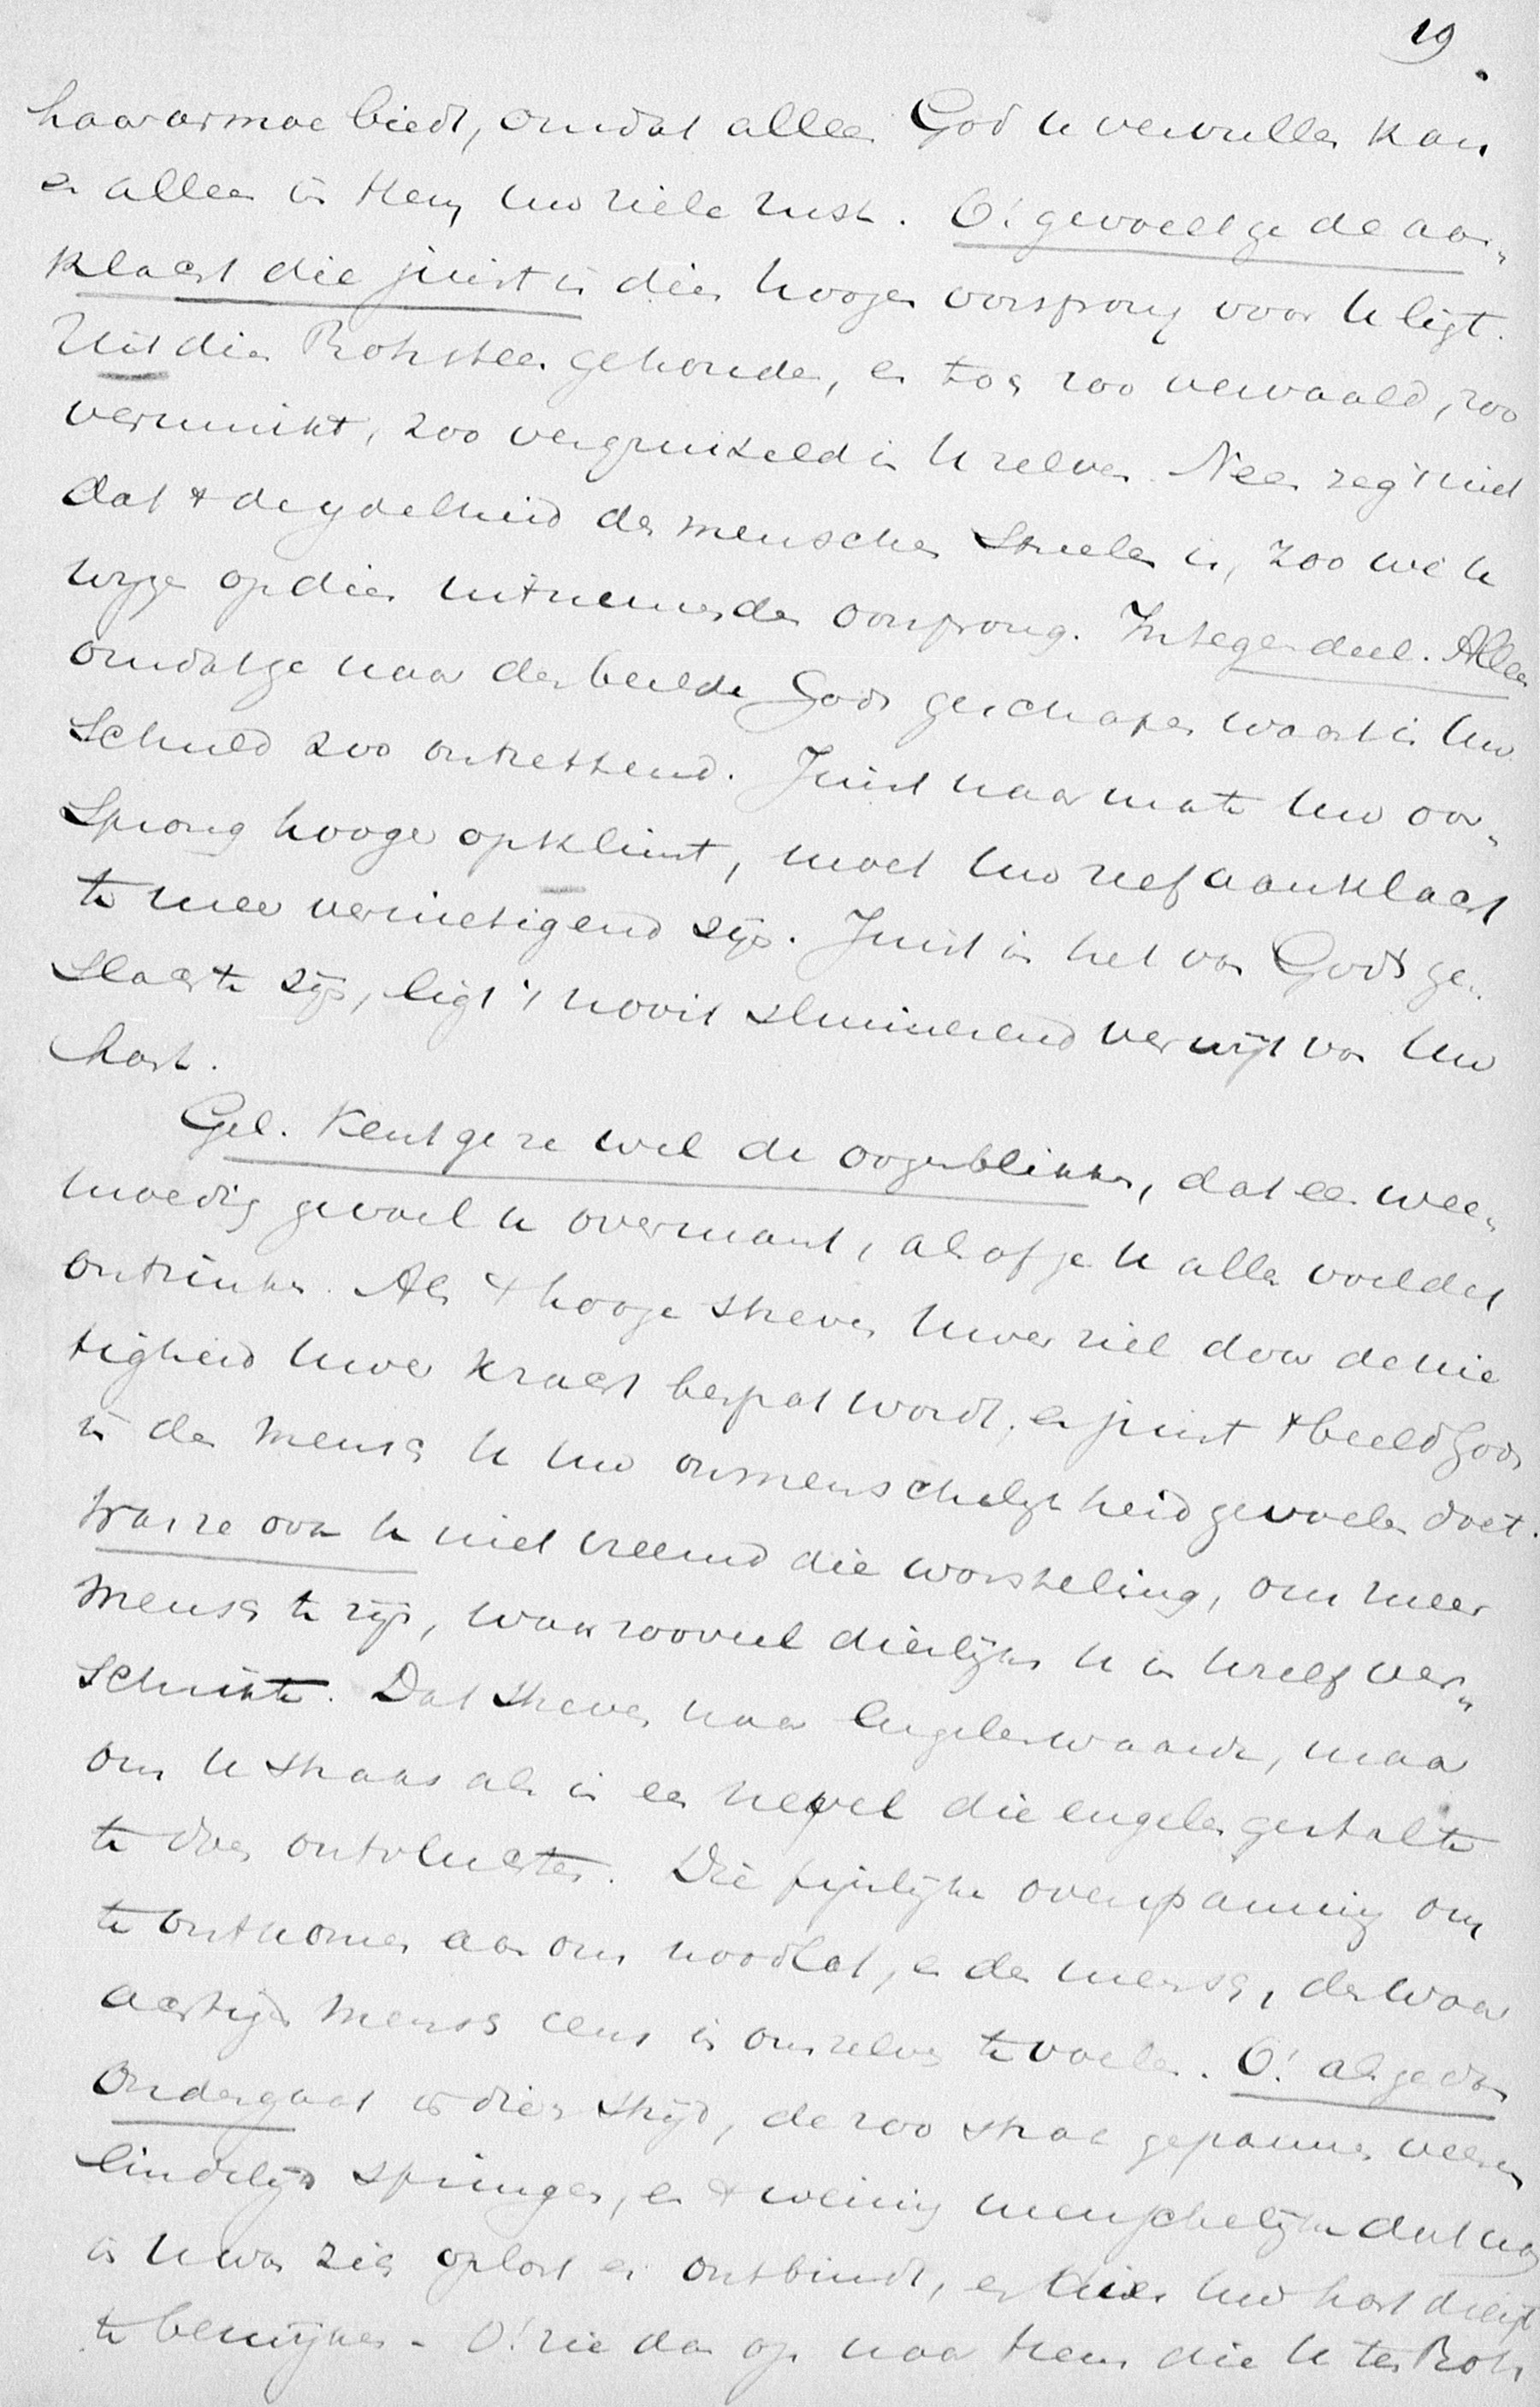 19.
haar armoe biedt, omdat alleen God u vervullen kan
en alleen in Hem uw ziele rust. O! gevoelt ge de aan„
klacht die juist in dien hoogen oorsprong voor u ligt.
Uit dien Rotssteen gehouden, en toch zoo verwaald, zoo
verminkt, zoo vergruizeld in u zelven. Neen zeg 't niet
dat 't de ydelheid der menschen streelen is, zoo we u
wyzen op dien uitnemenden oorsprong. Integendeel. Alleen
omdat ge naar den beelde Gods geschapen waart is uw
schuld zoo ontzettend. Juist naar mate uw oor„
sprong hooger opklimt, moet uw zelfaanklacht
te meer vernietigend zijn. Juist in het van Gods ge„
slachte zijn, ligt 't nooit sluimerend verwijt van uw
hart.
Gel. Kent ge ze wel de oogenblikken, dat een wee„
moedig gevoel u overmant, alsof ge u allen voeldet
ontzinken. Als 't hooge streven uwer ziel door de nie
tigheid uwer kracht bespot wordt, en juist 't beeld Gods
in den mensch u uw onmenschelykheid gevoelen doet.
Was ze ook u niet vreemd die worsteling, om meer
mensch te zijn, waar zooveel dierlijks u in uzelf ver„
schrikte. Dat streven naar Engelenwaarde, maar
om u straks als in een nevel die engelengestalte
te doen ontvluchten. Die pijnlijke overspanning om
te ontkomen aan ons noodlot, en den mensch, den waar
achtigen mensch eens in ons zelven te voelen. O! als ge dan
ondergaat in dien strijd, de zoo strak gespannen veeren
eindelijk springen, en 't weinig menschelijke dat nog
in u was zich oplost en ontbindt, en uw hart dreigt
te bezwijken – O! zie dan op naar Hem die u ten Rots